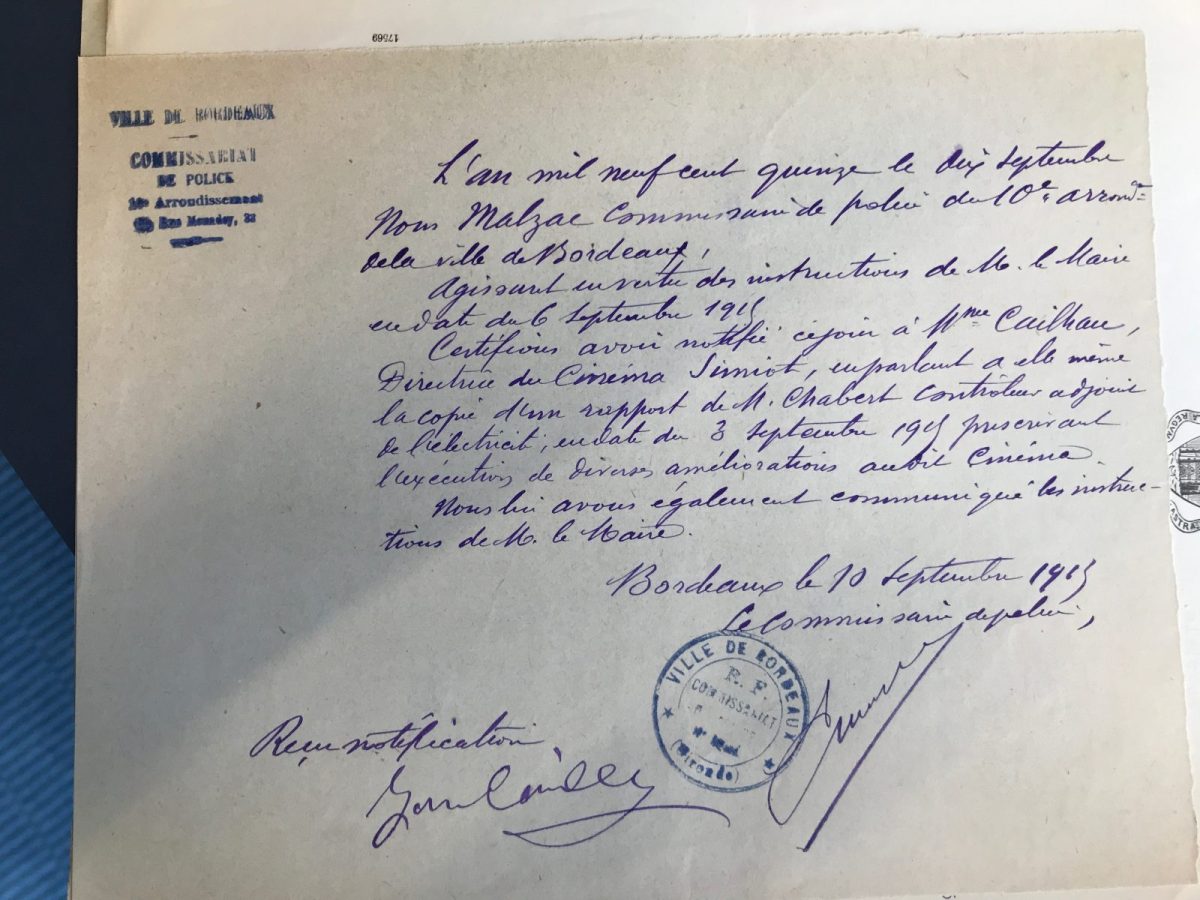 17569
VILLE DE BORDEAUX
COMMISSARIAT
DE POLICE
10e Arrondissement
Rue
L'an mil neuf cent quinze le dix septembre
Nous Malzac Commissaire de police du 10e arrondt
de la ville de Bordeaux,
Agissant en vertu des instructions de M. le Maire
en date du 6 septembre 1915
Certifions avoir notifié ce jour à Mme Cailhau,
Directrice du Cinéma Simiot, en parlant a elle même
la copie d'un rapport de M. Chabert contrôleur adjoint
de l'électricité, en date du 3 septembre 1915 prescrivant
l'exécution de diverses améliorations audit Cinéma.
Nous lui avons également communiqué les instruc-
tions de M. le Maire.
Bordeaux le 10 septembre 1915
Le Commissaire de police,
VILLE DE BORDEAUX
R. F.
COMMISSARIAT
(Gironde)
Reçu notification